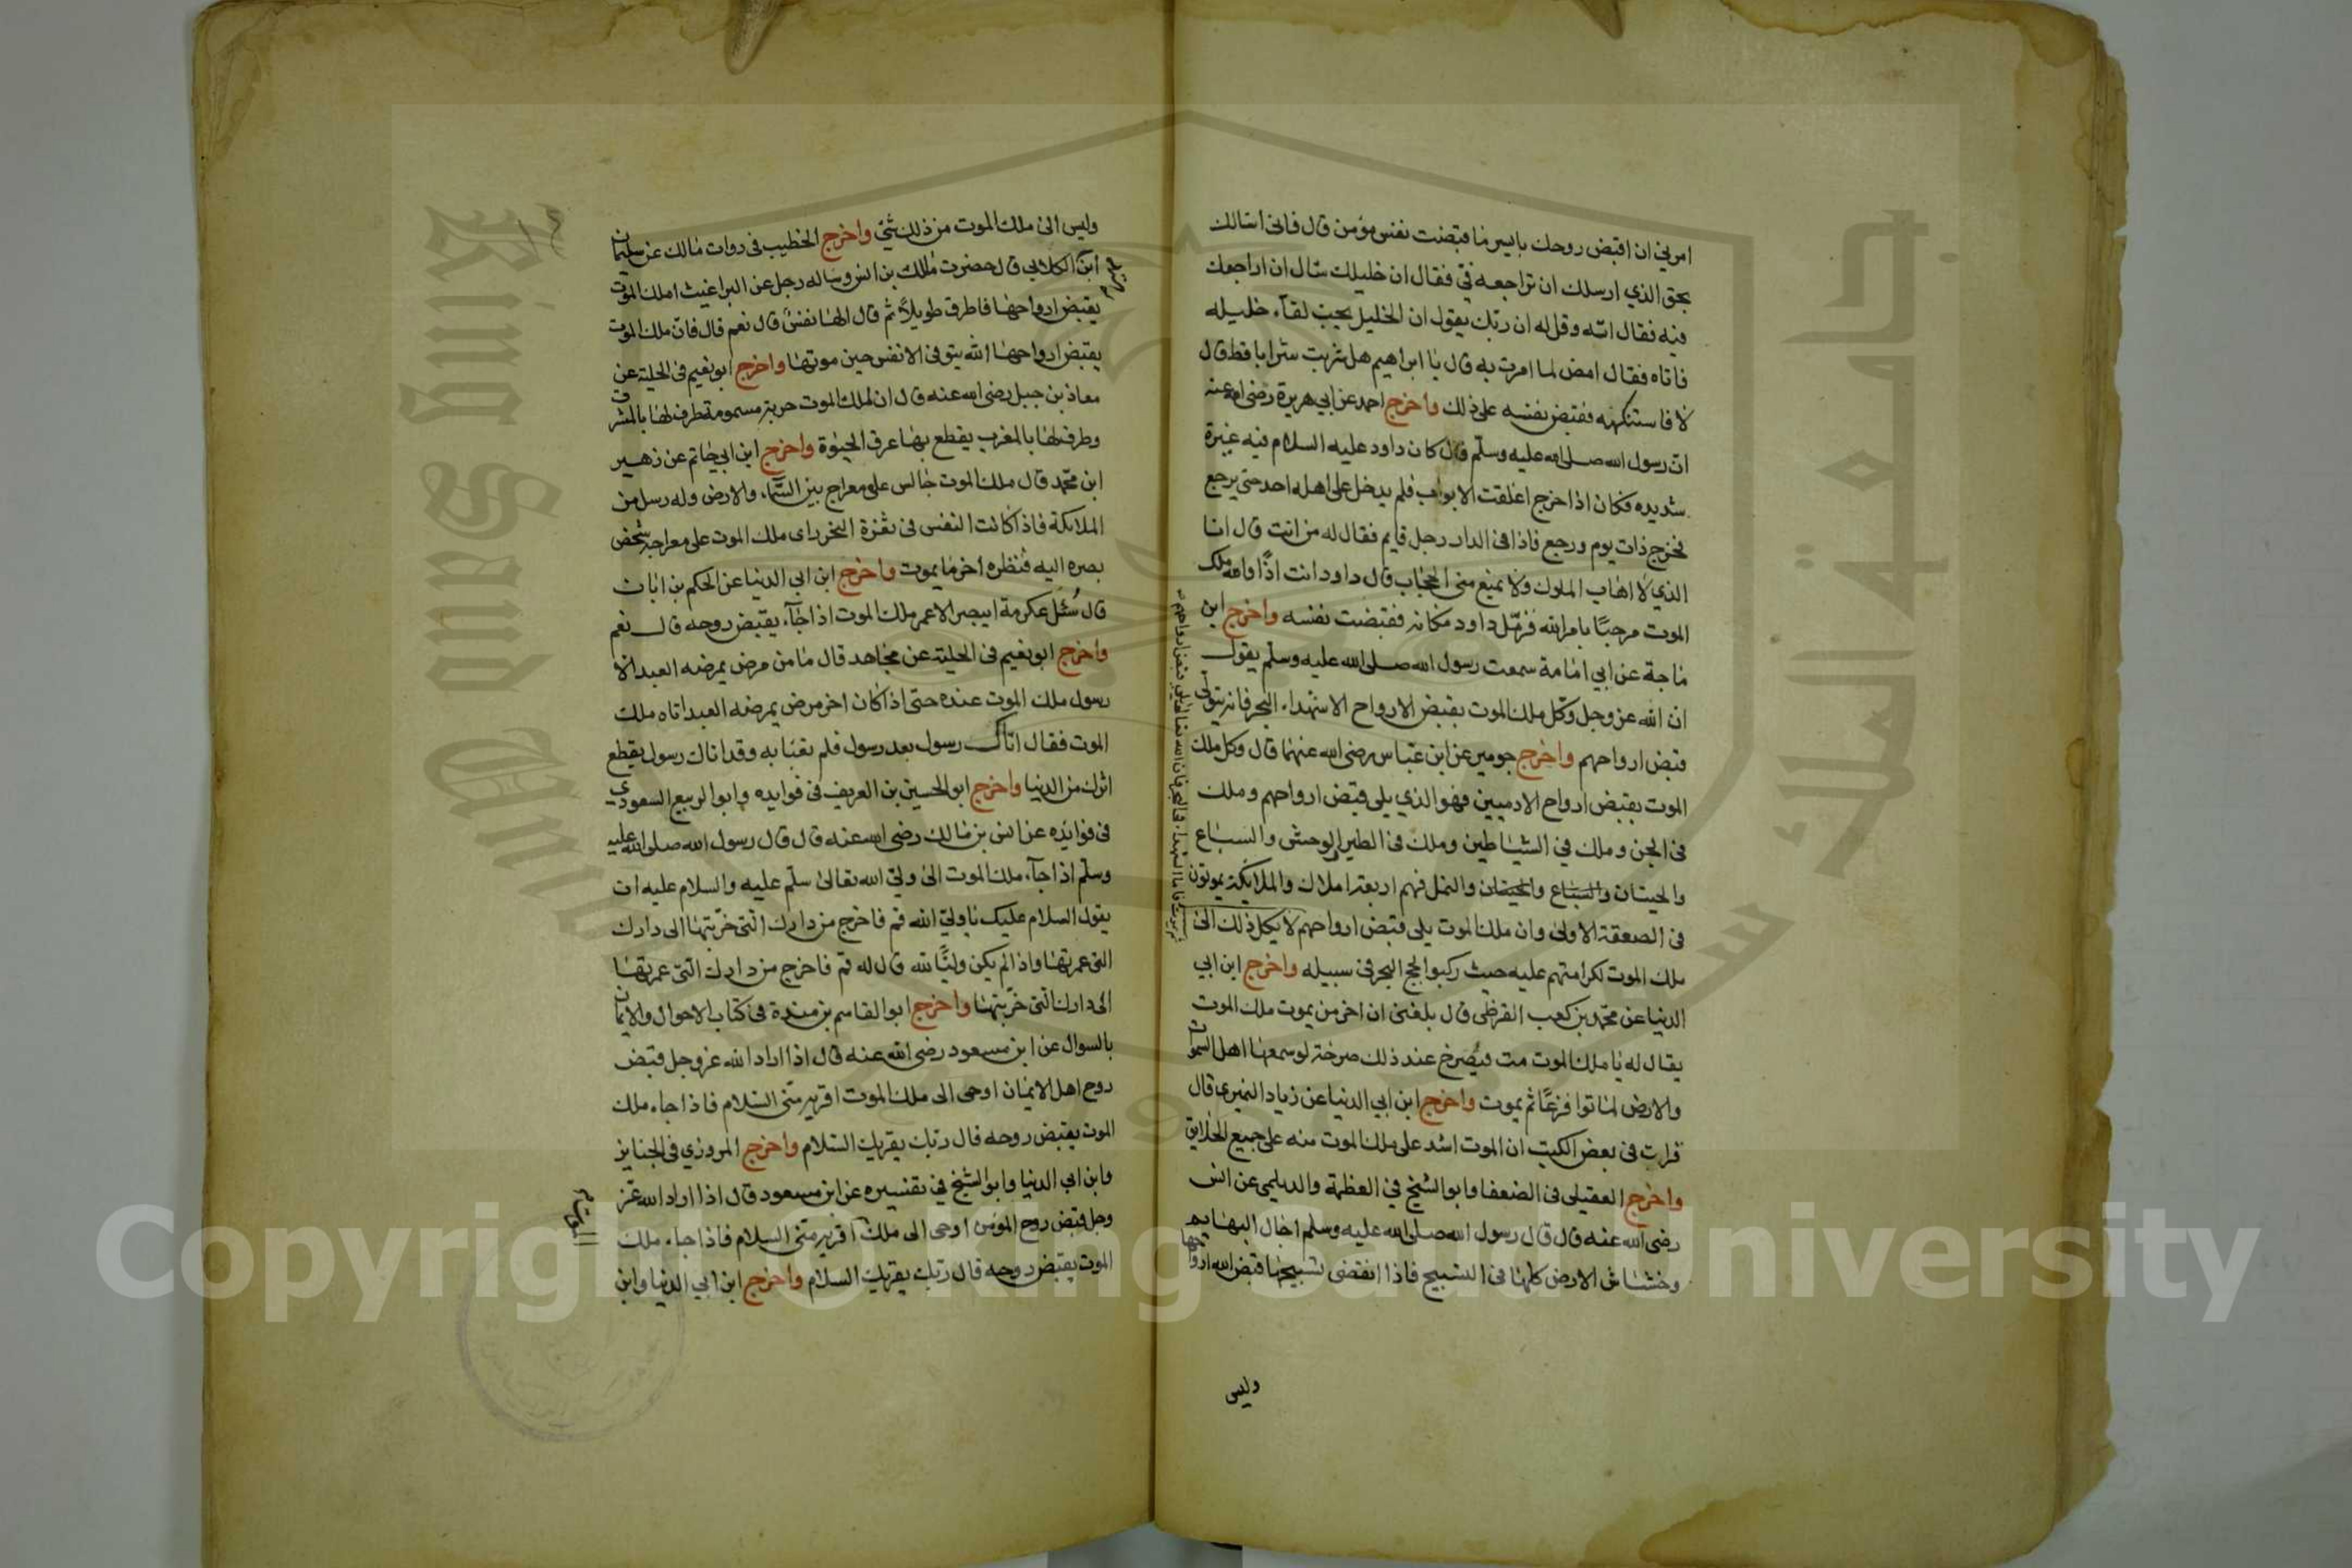 امرني ان اقبض روحك بايسر ما قبضت نفس مؤمن قال فاني اسالك
بحق الذي ارسلك ان تراجعه في فقال ان خليلك سال ان اراجعك
فيه فقال ائته وقل له ان ربك يقول ان الخليل يحب لقآء خليله
فاتاه فقال امض لما امرت به قال يا ابراهيم هل شربت شرابا قط قال
لا فاستنكهه فقبض نفسه على ذلك واخرج احمد عن ابي هريرة رضى الله عنه
ان رسول الله صلى الله عليه وسلم قال كان داود عليه السلام فيه غيرة
شديده فكان اذا خرج اغلقت الابواب فلم يدخل على اهله احد حتى يرجع
فخرج ذات يوم ورجع فاذا فى الدار رجل قايم فقال له من انت قال انا
الذي لا اهاب الملوك ولا يمنع منى الحجاب قال داود انت اذًا والله ملك
الموت مرحبًا بامر الله فزمّل داود مكانه فقبضت نفسه واخرج ابن
ماجة عن ابي امامة سمعت رسول الله صلى الله عليه وسلم يقول
ان الله عز وجل وكّل ملك الموت بقبض الارواح الا شهداء البحر فانه يتولى
قبض ارواحهم واخرج جويبر عن ابن عباس رضى الله عنهما قال وكل ملك
الموت بقبض ارواح الادميين فهو الذي يلى قبض ارواحهم وملك
فى الجن وملك في الشياطين وملك فى الطير والوحش والسباع
والحيتان والسباع والحيتان والنمل فهم اربعة املاك والملايكة يموتون
فى الصعقة الاولى وان ملك الموت يلى قبض ارواحهم لا يكل ذلك الى
ملك الموت لكرامتهم عليه حيث ركبوا لجج البحر فى سبيله واخرج ابن ابي
الدنيا عن محمد بن كعب القرظى قال بلغنى ان اخر من يموت ملك الموت
يقال له يا ملك الموت مت فيصرخ عند ذلك صرخة لو سمعها اهل السموات
والارض لماتوا فزعًا ثم يموت واخرج ابن ابي الدنيا عن زياد النميرى قال
قرات فى بعض الكتب ان الموت اشد على ملك الموت منه على جميع الخلايق
واخرج العقيلى فى الضعفا وابو الشيخ في العظمة والديلمى عن انس
رضى الله عنه قال قال رسول الله صلى الله عليه وسلم اجال البهايم
وخشاش الارض كلها فى التسبيح فاذا انقضى تسبيحها قبض الله ارواحها
وليس
ثم يموت فاما الشهداء فى البحر فان الله تعالى يلى قبض ارواحهم
وليس الى ملك الموت من ذلك شئ واخرج الخطيب فى روات مالك عن سليمان
ابن الكلابي قال حضرت مالك بن انس وساله رجل عن البراغيث املك الموت
يقبض ارواحها فاطرق طويلاً ثم قال الها نفسٌ قال نعم قال فان ملك الموت
يقبض ارواحها الله يتوفى الانفس حين موتها واخرج ابو نعيم فى الحلية عن
معاذ بن جبل رضى الله عنه قال ان لملك الموت حربة مسمومة طرف لها بالمشرق
وطرف لها بالمغرب يقطع بها عرق الحيوة واخرج ابن ابي حاتم عن زهير
ابن محمد قال ملك الموت جالس على معراج بين السماء والارض وله رسل من
الملايكة فاذا كانت النفس فى ثغرة النحر راى ملك الموت على معراجه شخص
بصره اليه فنظره اخر ما يموت واخرج ابن ابي الدنيا عن الحكم بن ابان
قال سُئل عكرمة ايبصر الاعمى ملك الموت اذا جآء يقبض روحه قال نعم
واخرج ابو نعيم فى الحلية عن مجاهد قال ما من مرض يمرضه العبد الا
رسول ملك الموت عنده حتى اذا كان اخر مرض يمرضه العبد اتاه ملك
الموت فقال اتاك رسول بعد رسول فلم تعبا به وقد اتاك رسول يقطع
اثرك من الدنيا واخرج ابو الحسين بن العريف فى فوايده وابو الربيع السعودي
فى فوايده عن انس بن مالك رضى الله عنه قال قال رسول الله صلى الله عليه
وسلم اذا جآء ملك الموت الى ولي الله تعالى سلّم عليه والسلام عليه ان
يقول السلام عليك يا ولي الله قم فاخرج من دارك التى خرّبتها الى دارك
التى عمرتها واذا لم يكن وليًّا لله قال له قم فاخرج من دارك التى عمرتها
الى دارك التى خرّبتها واخرج ابو القاسم بن مندة فى كتاب الاحوال والايمان
بالسوال عن ابن مسعود رضى الله عنه قال اذا اراد الله عز وجل قبض
روح اهل الايمان اوحى الى ملك الموت اقريه منّى السلام فاذا جاء ملك
الموت يقبض روحه قال ربك يقريك السلام واخرج المروزي فى الجنايز
وابن ابي الدنيا وابو الشيخ في تفسيره عن ابن مسعود قال اذا اراد الله عزّ
وجل قبض روح المؤمن اوحى الى ملك اقريه منّى السلام فاذا جاء ملك
الموت يقبض روحه قال ربك يقريك السلام واخرج ابن ابي الدنيا وابن
Copyright © King Saud University
King Saud University
جامعة الملك سعود